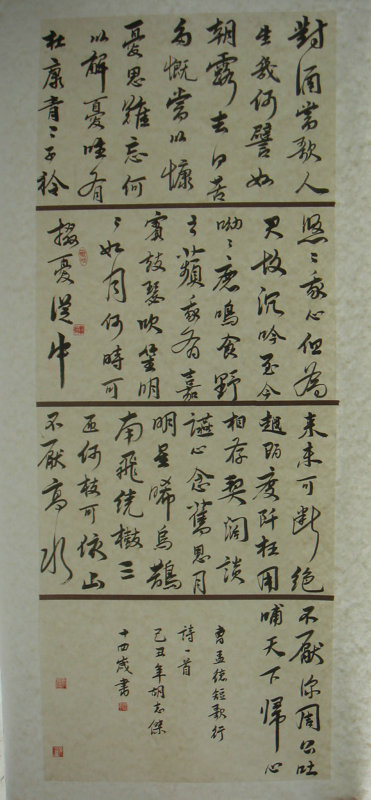 對酒當歌人
生幾何譬如
朝露去日苦
多慨當以慷
憂思難忘何
以解憂唯有
杜康青〻子衿
悠〻我心但為
君故沉吟至今
呦〻鹿鳴食野
之蘋我有嘉
賓鼓瑟吹笙明
〻如月何時可
掇憂從中
來未可斷絕
越陌度阡枉用
相存契闊談
讌心念舊恩月
明星晞烏鵲
南飛繞樹三
匝何枝可依山
不厭高水
不厭深周公吐
哺天下歸心
曹孟德短歌行
詩一首
己丑年胡志傑
十四歲書